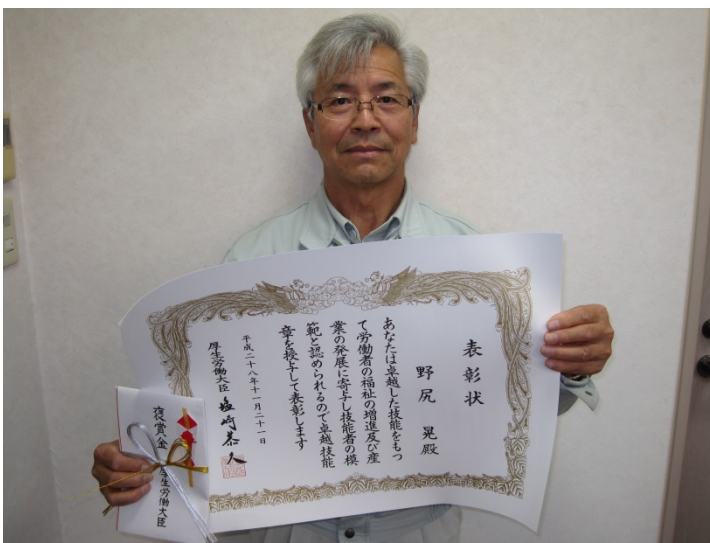 表彰状
野尻 晃殿
あなたは卓越した技能をもつ
て労働者の福祉の増進及び産
業の発展に寄与し技能者の模
範と認められるので卓越技能
章を授与して表彰します
平成二十八年十一月二十一日
厚生労働大臣 塩崎恭久
褒賞金
厚生労働大臣